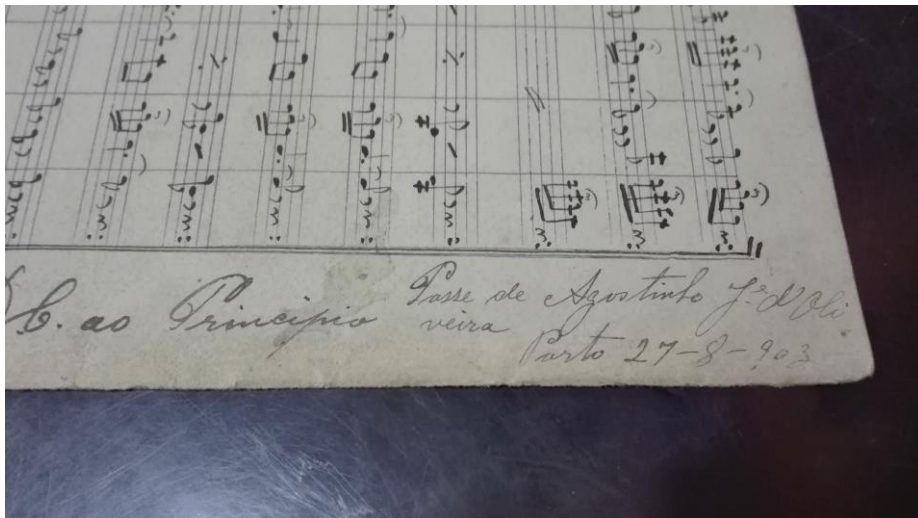 D.C. ao Principio
Posse de Agostinho J.e d'Oli
veira
Porto 27-8-903